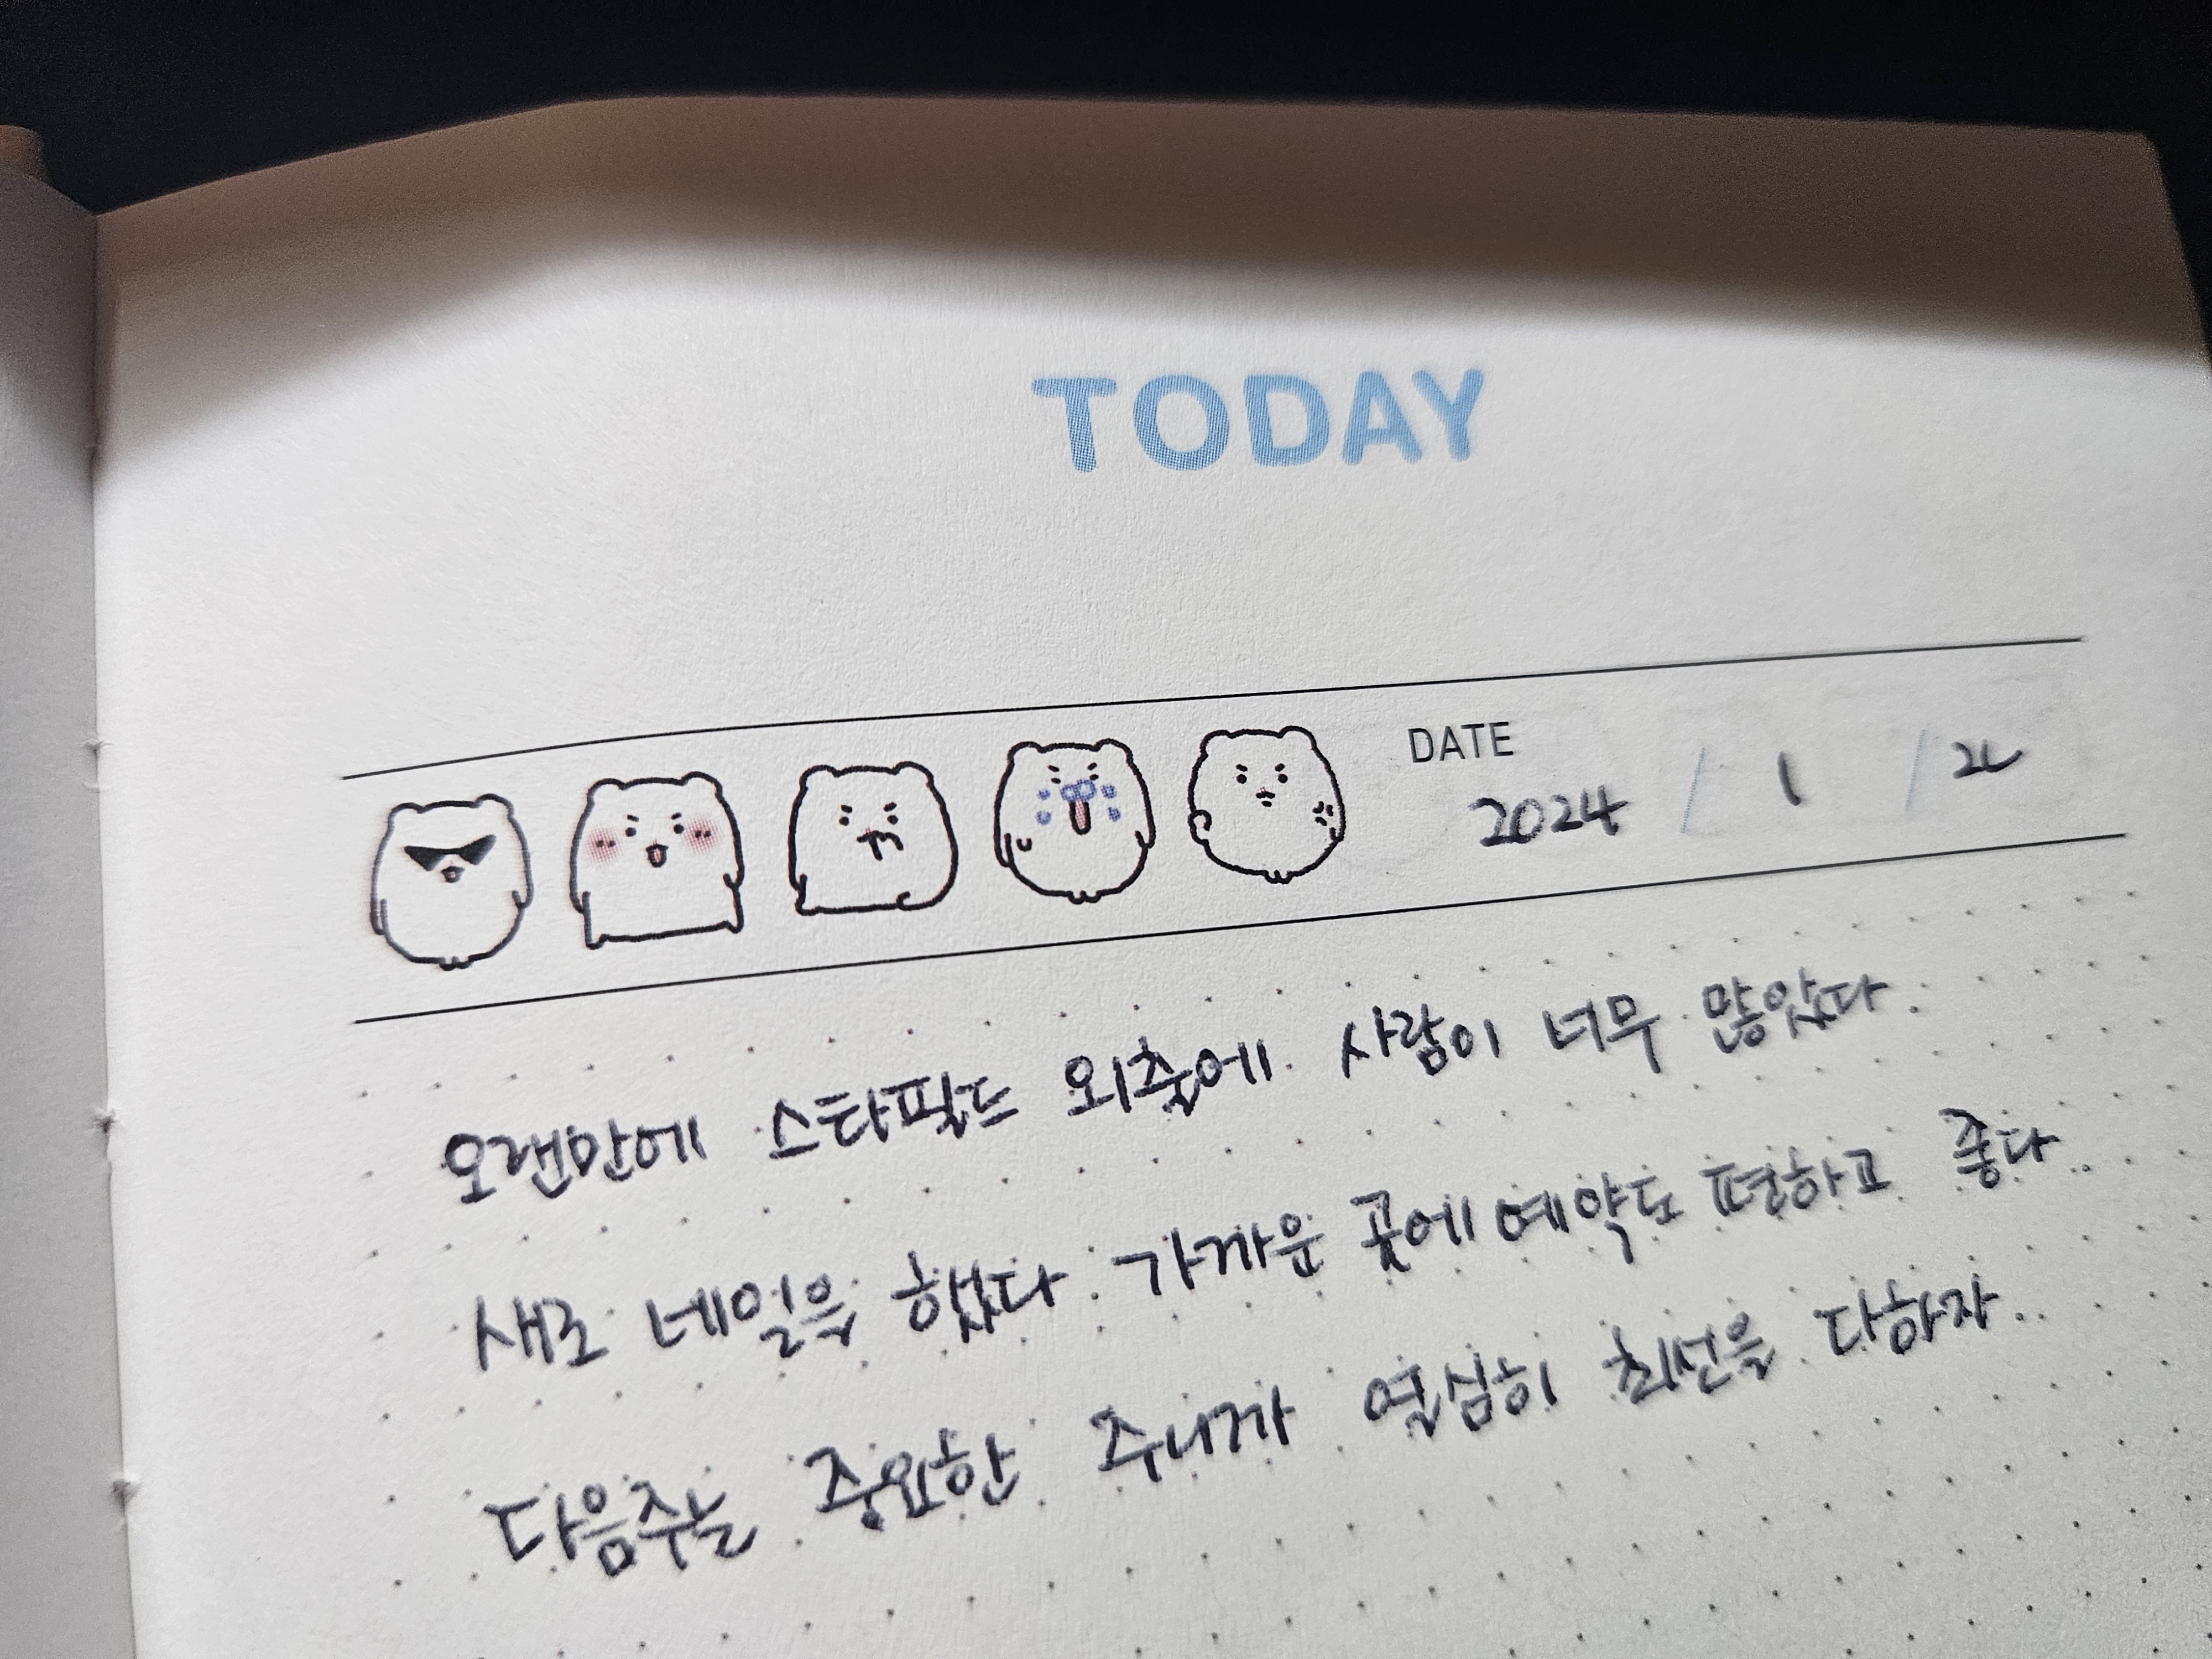 TODAY
DATE
2024 / 1 /
오랜만에 스타필드 외출에 사람이 너무 많았다.
새로 네일을 했다. 가까운 곳에 예약도 편하고 좋다..
다음주는 중요한 주니까 열심히 최선을 다하자..